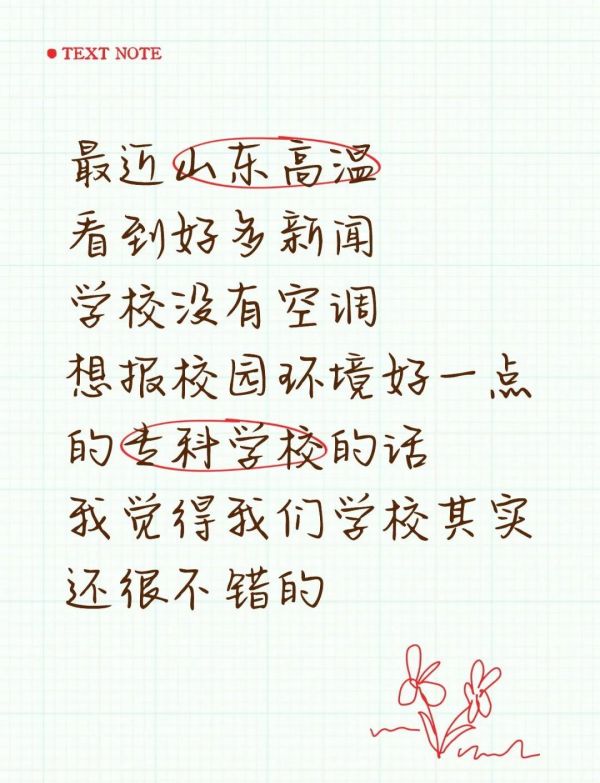 TEXT NOTE
最近山东高温
看到好多新闻
学校没有空调
想报校园环境好一点
的专科学校的话
我觉得我们学校其实
还很不错的